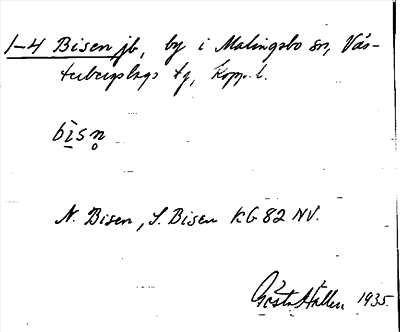 1-4 Bisen jb, by i Malingsbo sn, Väs-
terbergslags tg, Kopp. l.
bisn̥
N. Bisen, S. Bisen KG 82 NV.
Gösta Hallen 1935.